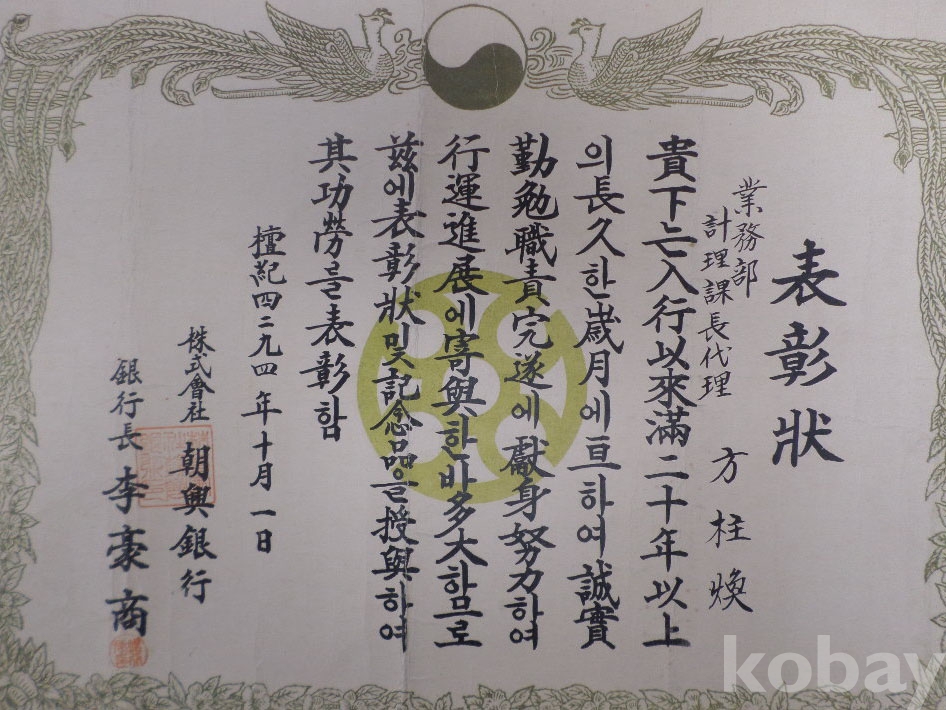 表彰狀
業務部
計理課長代理 方柱煥
貴下는入行以來滿二十年以上
의長久한歲月에亘하여誠實
勤勉職責完遂에獻身努力하여
行運進展에寄與한바多大하므로
玆에表彰狀및記念品을授與하여
其功勞를表彰함
檀紀四二九四年十月一日
株式會社 朝興銀行
銀行長 李豪商
kobay